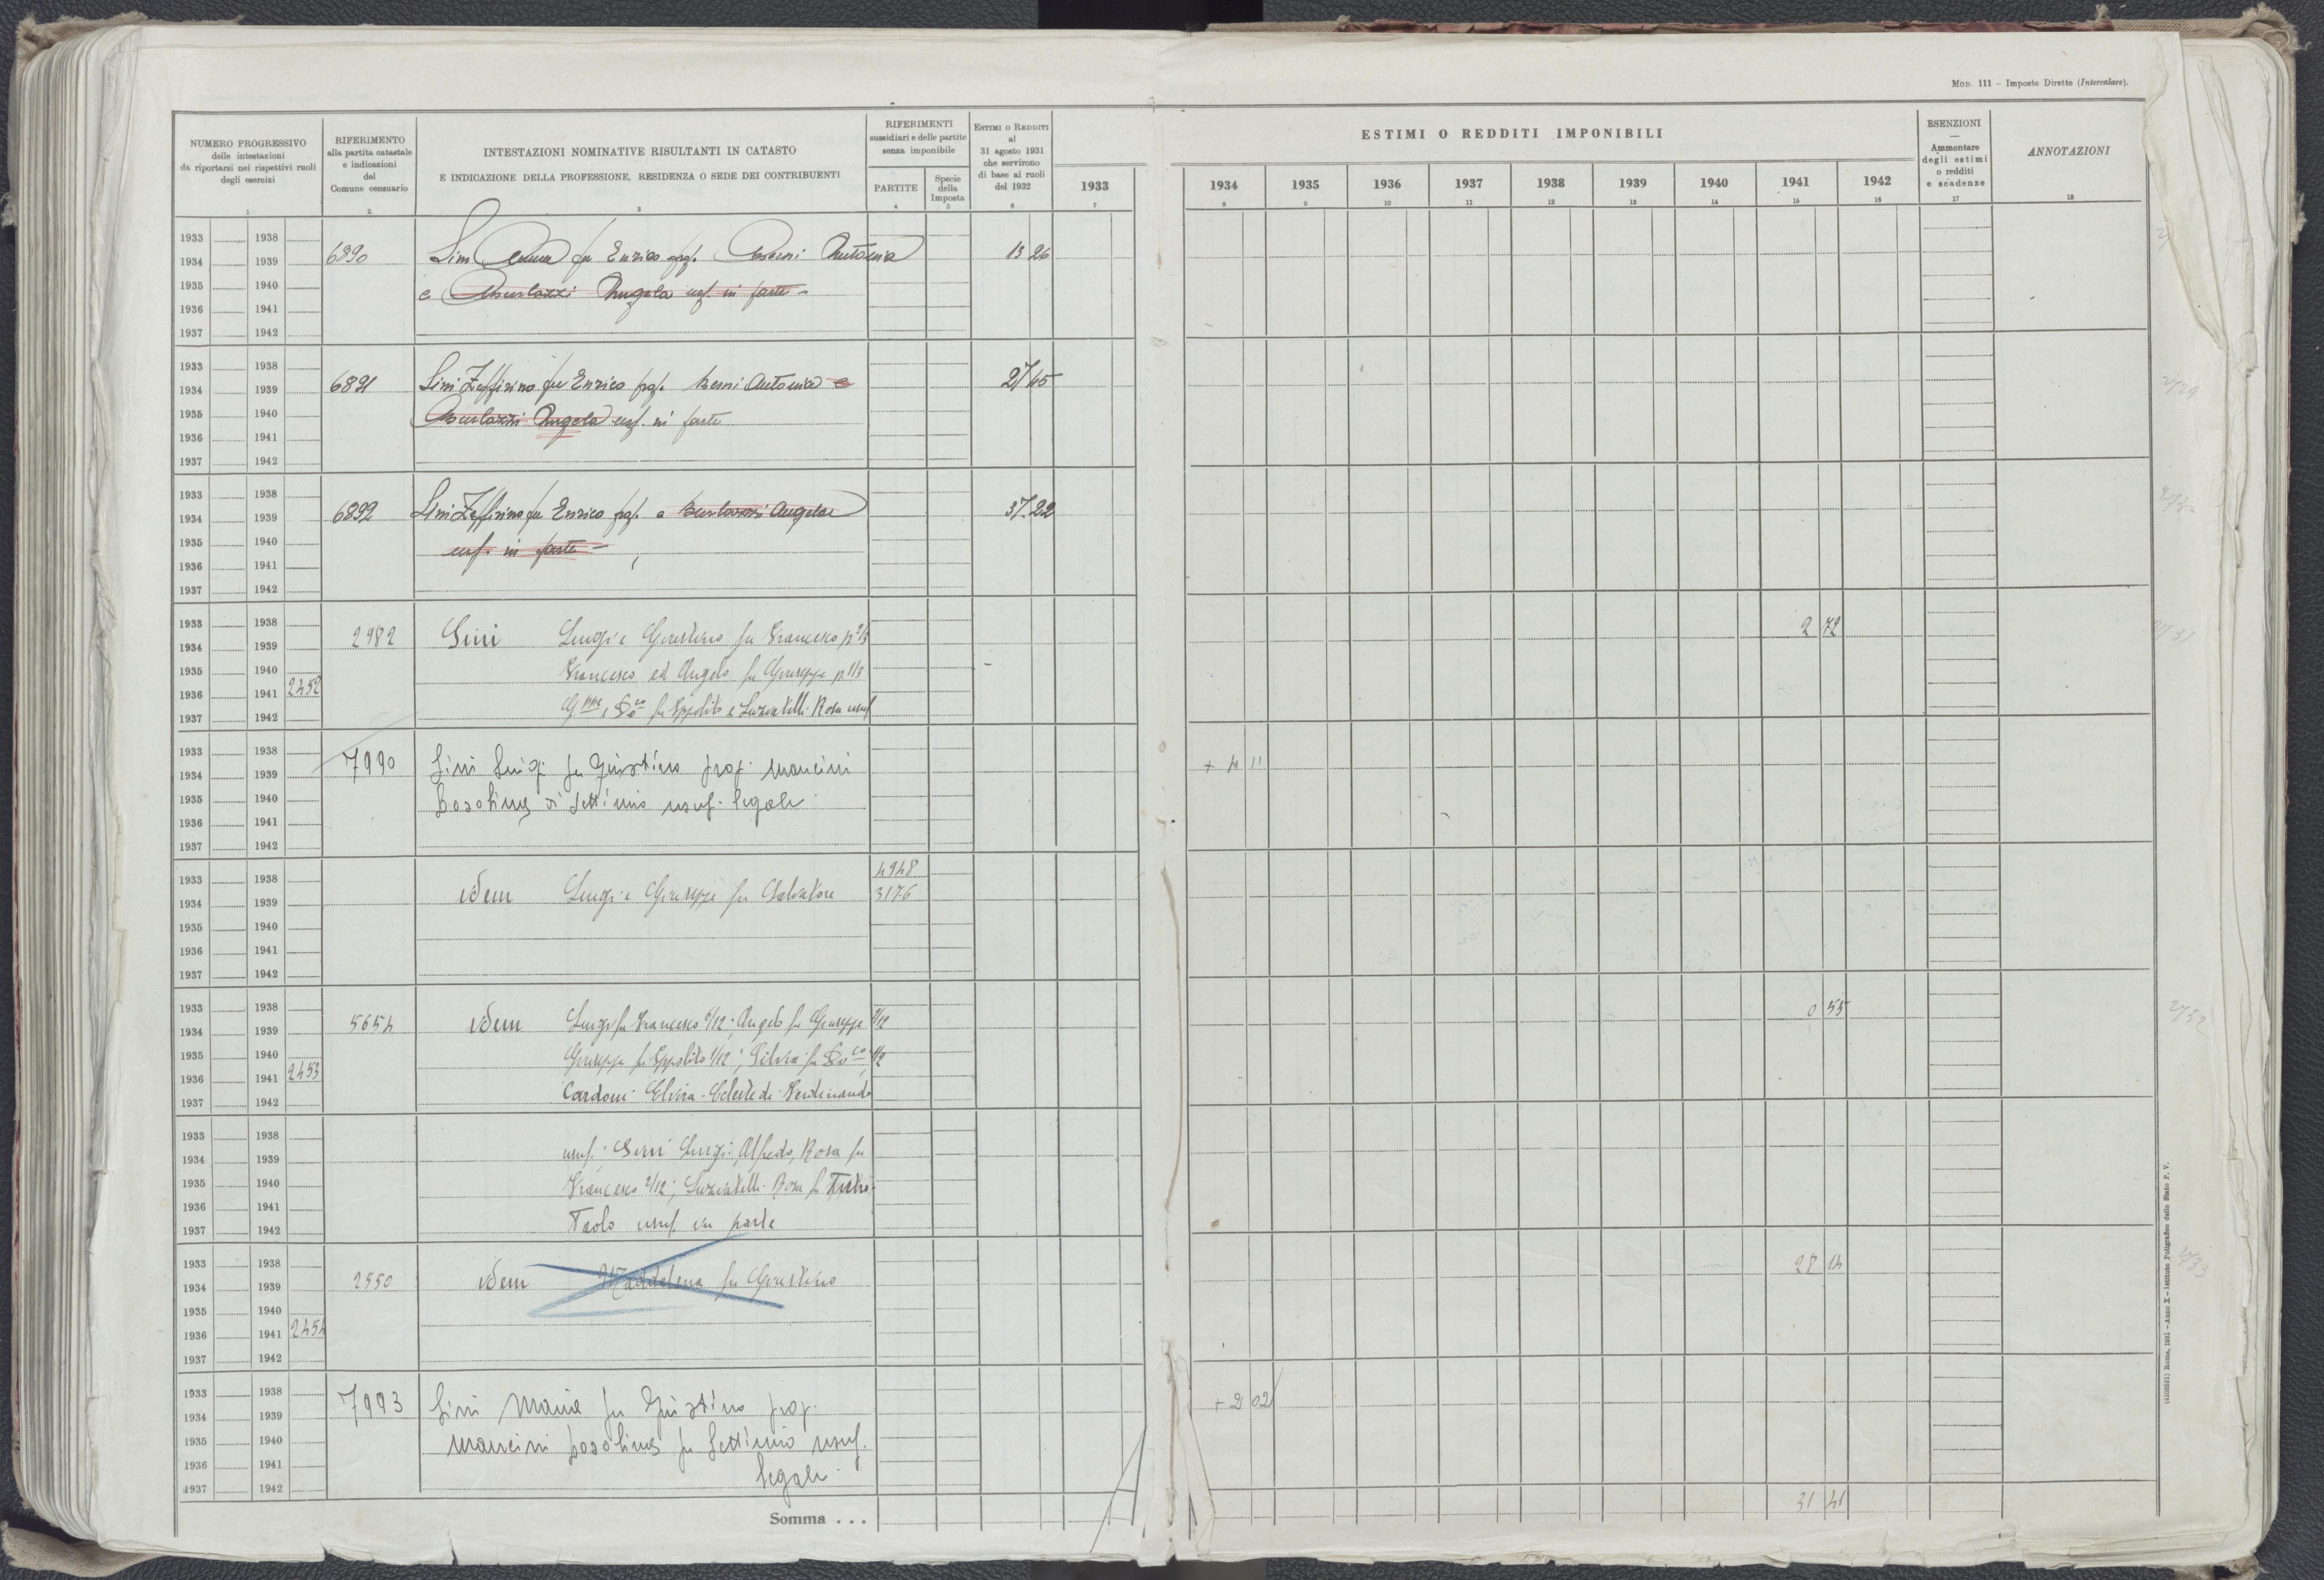 Mod. 111 – Imposte Dirette (Intercalare).
NUMERO PROGRESSIVO
delle intestazioni
da riportarsi nei rispettivi ruoli
degli esercizi
1
RIFERIMENTO
alla partita catastale
e indicazioni
del
Comune censuario
2
INTESTAZIONI NOMINATIVE RISULTANTI IN CATASTO
E INDICAZIONE DELLA PROFESSIONE, RESIDENZA O SEDE DEI CONTRIBUENTI
3
RIFERIMENTI
sussidiari e delle partite
senza imponibile
PARTITE
4
Specie
della
Imposta
5
Estimi o Redditi
al
31 agosto 1931
che servirono
di base ai ruoli
del 1932
6
1933
7
ESTIMI O REDDITI IMPONIBILI
1934 1935 1936 1937 1938 1939 1940 1941 1942
8 9 10 11 12 13 14 15 16
ESENZIONI
—
Ammontare
degli estimi
o redditi
e scadenze
17
ANNOTAZIONI
18
1933 1938
1934 1939 6890 Sini fu Enrico prop. Antonia 13 26
1935 1940 e Angela usf. in parte
1936 1941
1937 1942
1933 1938
1934 1939 6891 Sini Zeffirino fu Enrico prop. Antonia e 27 45
1935 1940 Angela usf. in parte
1936 1941
1937 1942
1933 1938
1934 1939 6892 Sini Zeffirino fu Enrico prop. e Angela 37 22
1935 1940 usf. in parte
1936 1941
1937 1942
1933 1938
1934 1939 2982 Sini Luigi e Giustino fu Francesco p 2/3 2 72
1935 1940 Francesco ed Angelo fu Giuseppe p 1/3
1936 1941 2452
1937 1942 Gppe e Doco fu Ippolito e Luziatelli Rosa usuf
1933 1938
1934 1939 7990 Sini Luigi fu Giustino prop. Mancini + 4 11
1935 1940 di Settimio usuf. legale
1936 1941
1937 1942
4948
1933 1938
1934 1939 idem Luigi e Giuseppe fu Salvatore 3176
1935 1940
1936 1941
1937 1942
1933 1938
1934 1939 5654 idem Luigi fu Francesco /12; Angelo fu Giuseppe /12 0 55
1935 1940 Giuseppe fu Ippolito 1/12; Silvia fu Doco 1/2
1936 1941 2453
1937 1942 Cardoni Elvira-Celeste di Ferdinando
1933 1938
1934 1939 usuf.; Sini Luigi, Alfredo, Rosa fu
1935 1940 Francesco 2/12; Luziatelli Rosa fu Pietro
1936 1941
1937 1942 Paolo usuf. in parte
1933 1938
1934 1939 2550 idem Maddalena fu Giustino 28 14
1935 1940
1936 1941 2454
1937 1942
1933 1938
1934 1939 7993 Sini Maria fu Giustino prop. + 2 02
1935 1940 Mancini fu Settimio usuf.
1936 1941 legale
1937 1942
Somma . . . 31 41
2731
2732
2733
(4103581) Roma, 1931 - Anno X - Istituto Poligrafico dello Stato P. V.